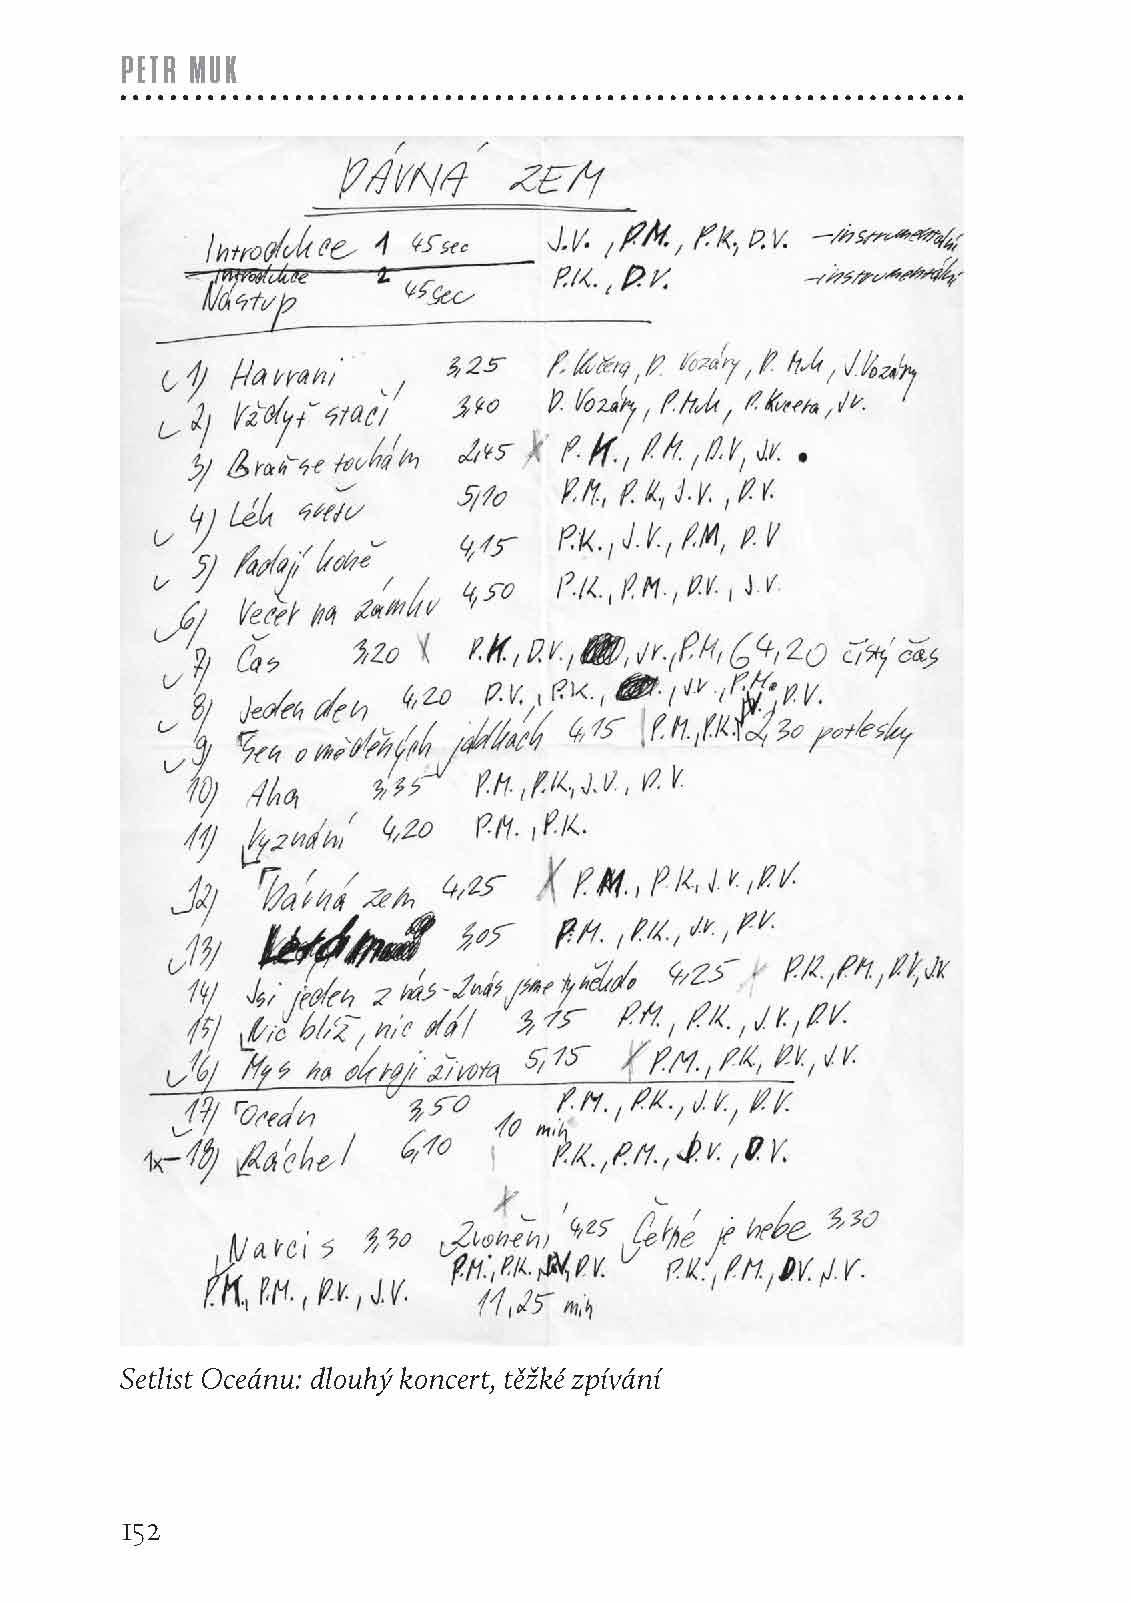 PETR MUK
DÁVNÁ ZEM
Introdukce 1 45sec J.V., P.M., P.K., D.V. – instrumentální
introdukce 2 P.K., D.V. – instrumentální
Nástup 45sec
1) Havrani 3,25 P. Kučera, D. Vozáry, P. Muk, J. Vozáry
2) Vždyť stačí 3,40 D. Vozáry, P. Muk, P. Kucera, J.V.
3) Braň se touhám 2,45 x P.K., P.M., D.V., J.V.
4) Lék světu 5,10 P.M., P.K., J.V., D.V.
5) Padají koně 4,15 P.K., J.V., P.M., D.V
6) Večer na zámku 4,50 P.K., P.M., D.V., J.V.
7) Čas 3,20 x P.K., D.V., J.V., P.M. 64,20 čistý čas
8) Jeden den 4,20 D.V., P.K., J.V., P.M., D.V.
9) Sen o měděných jablkách 4,15 P.M., P.K. J.V. 2,30 potlesky
10) Aha 3,35 P.M., P.K., J.V., D.V.
11) Vyznání 4,20 P.M., P.K.
12) Dávná zem 4,25 x P.M., P.K, J.V., D.V.
13) 3,05 P.M., P.K., J.V., D.V.
14) Jsi jeden z nás - 2,25 P.K., P.M., D.V., J.V.
15) Nic blíž, nic dál 3,15 P.M., P.K., J.V., D.V.
16) Mys na okraji života 5,15 x P.M., P.K., D.V., J.V.
17) Oceán 3,50 P.M., P.K., J.V., D.V.
10 min
1x– 18) Ráchel 6,10 P.K., P.M., D.V., D.V.
x
Narcis 3,30 Zvonění 4,25 Černé je nebe 3,30
P.K., P.M., D.V., J.V. P.M., P.K. J.V., D.V. P.K., P.M., D.V. J.V.
11,25 min
Setlist Oceánu: dlouhý koncert, těžké zpívání
152